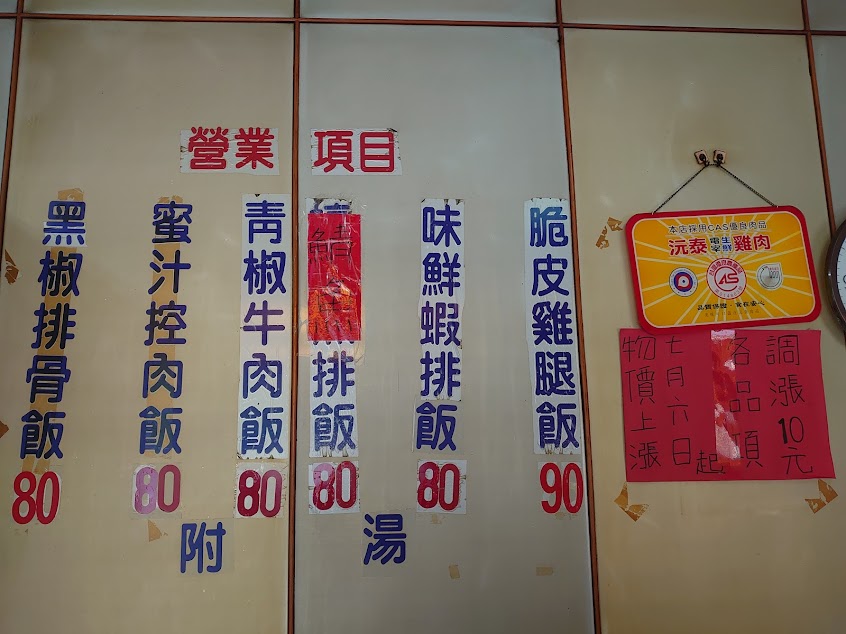 營業項目
黑椒排骨飯
80
蜜汁控肉飯
80
青椒牛肉飯
80
排飯
80
味鮮蝦排飯
80
脆皮雞腿飯
90
附湯
本店採用CAS優良肉品
沅泰電宰生鮮雞肉
物價上漲
七月六日起
各品項
調漲10元